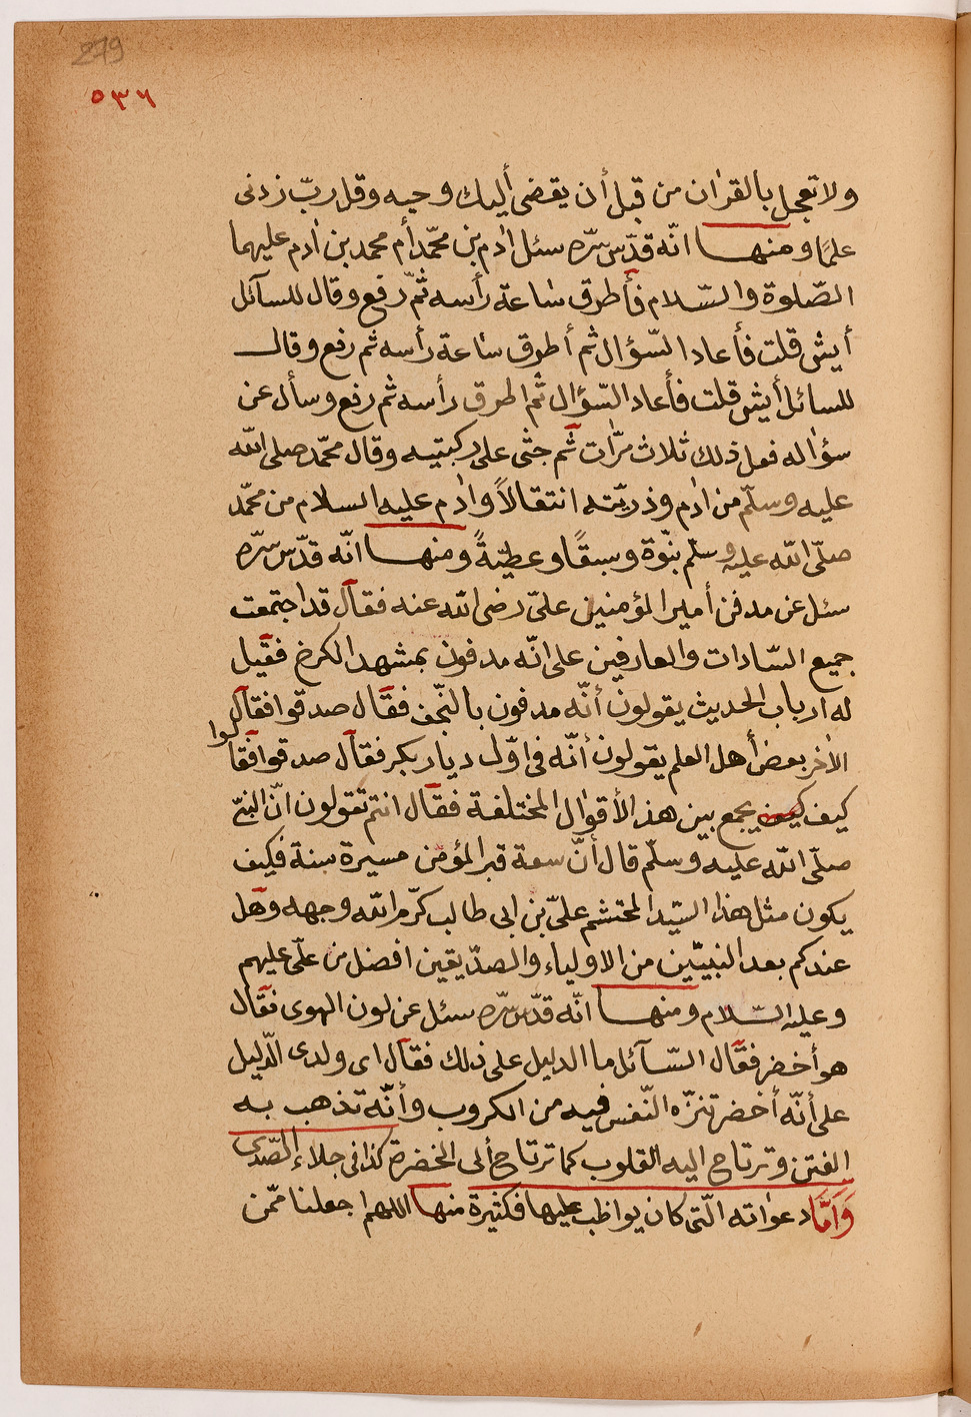 279
٥٣٦
ولا تعجل بالقرٰان من قبل أن يقضى أليك وحيه وقل ربّ زدنى
علمًا ومنها انّه قدّس سرّه سئل اٰدم بن محمّد أم محمد بن اٰدم عليهما
الصّلوة والسّلام فأطرق ساعة رأسه ثمّ رفع وقال للسآئل
أيش قلت فأعاد السّؤال ثم أطرق ساعة رأسه ثم رفع وقال
للسائل أيش قلت فأعاد السّؤال ثم اطرق رأسه ثم رفع وسأل عن
سؤاله فعل ذلك ثلاث مرّات ثم جثى على ركبتيه وقال محمّد صلى الله
عليه وسلّم من اٰدم وذريّته انتقالاً واٰدم عليه السلام من محمّد
صلّى الله عليه وسلّم بنوّة وسبقًا وعطيّةً ومنها انّه قدّس سرّه
سئل عن مدفن أمير المؤمنين علىّ رضى الله عنه فقال قد اجتمعت
جميع السّادات والعارفين على انّه مدفون بمشهد الكرخ فقيل
له ارباب الحديث يقولون أنّه مدفون بالنّجف فقال صدقوا فقال
الاٰخر بعض أهل العلم يقولون أنّه فى اوّل ديار بكر فقال صدقوا فقالوا
كيف كيف يجمع بين هذ الأقوال المختلفة فقال انتم تقولون انّ النبىّ
صلّى الله عليه وسلّم قال أنّ سعة قبر المؤمن مسيرة سنة فكيف
يكون مثل هذا السّيد المحتشم علىّ بن ابى طالب كرّم الله وجهه وهل
عندكم بعد النبيّين من الاولياء والصدّيقين افضل من علىّ عليهم
وعليه السّلام ومنها انّه قدّس سرّه سئل عن لون الهوى فقال
هو أخضر فقال السّآئل ما الدليل على ذلك فقال اى ولدى الدّليل
على أنّه أخضر تنزّه النّفس فيه من الكروب وأنّه تذهب به
الفتن وترتاح اليه القلوب كما ترتاح ألى الخضرة كذا فى جلاء الصّدى
وَاَمَّا دعواته الّتى كان يواظب عليها فكثيرة منها اللهم اجعلنا ممّن